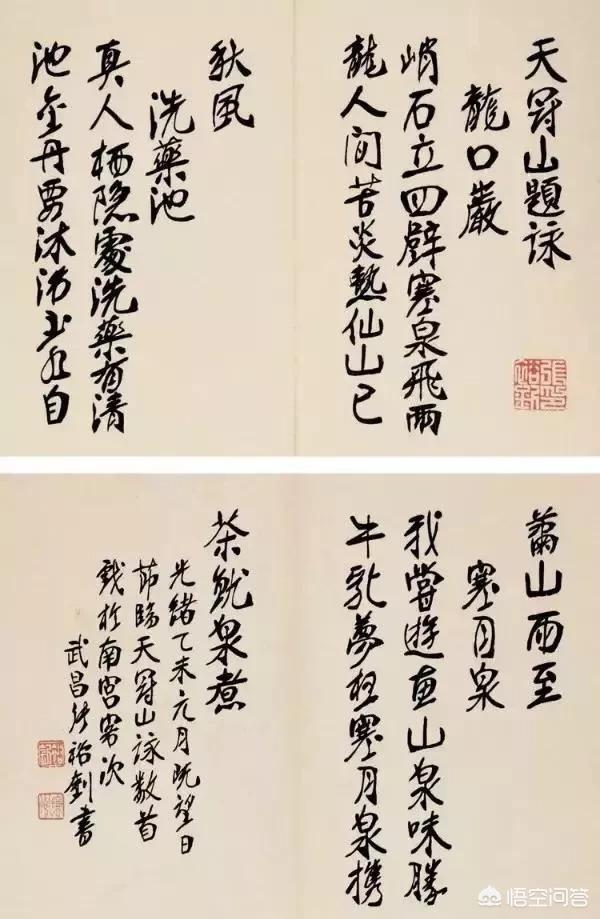 天冠山題詠
龍口巖
峭石立四壁寒泉飛兩
龍人間苦炎熱仙山已
秋風
洗藥池
真人栖隐處洗藥有清
池金丹要沐浴玉水自
山雨至
寒月泉
我嘗遊惠山泉味勝
牛乳夢想寒月泉携
茶就泉煮
光緒乙未元月既望日
節臨天冠山詠數首
於南宮客次
武昌張裕釗書
悟空问答